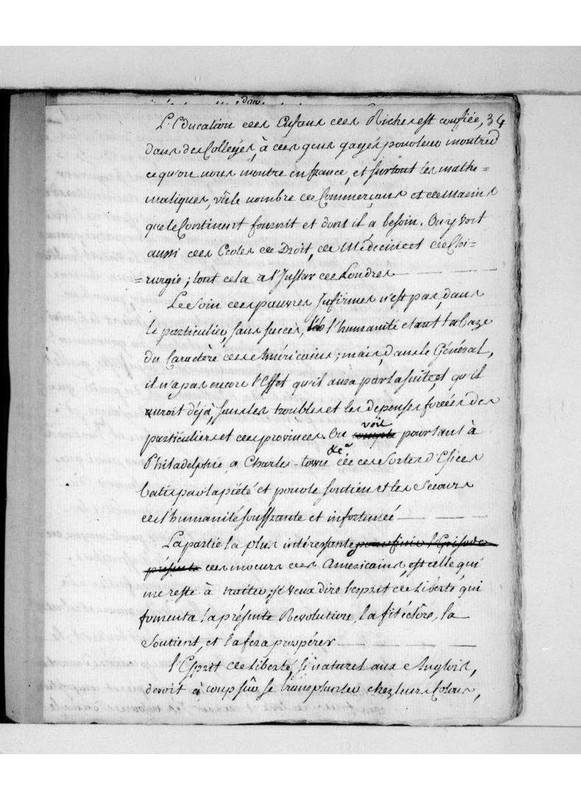 dans
34
L'Education des Enfans des Riches est confiée,
dans des Colleges, à des gens gagés pour leur montrer
ce qu'on nous montre en france, et surtout les mathe-
matiques, vû le nombre de Commerçans et de Marins
que le Continent fournit et dont il a besoin. On y voit
aussi des Ecoles de Droit, de Médecine et de Chi-
=rurgie; tout cela a l'Instar de Londres
Le Soin des pauvres Infirmes n'est pas, dans
le particulier, sans succès, l'humanité étant la Baze
du Caractère des Américains; mais, dans le Général,
il n'a pas encore l'Effet qu'il aura par la suite, et qu'il
auroit déjà, sans les troubles et les depenses forcées des
particuliers et des provinces. On voit pourtant à
Philadelphie, a Charles-town &c de ces sortes d'Edifices
batis par la piété et pour le soutien et les Secours
de l'humanité souffrante et infortunée
La partie la plus intéressante pour finir l'Episode
présente des moeurs des Americains, est celle qui
me reste à traiter; je veux dire l'esprit de Liberté qui
fomenta la présente Revolution, la fit éclore, la
Soutient, et la fera prospérer
l'Esprit de liberté, si naturel aux Anglois,
devoit à coup sûr se transplanter chez leurs Colons,